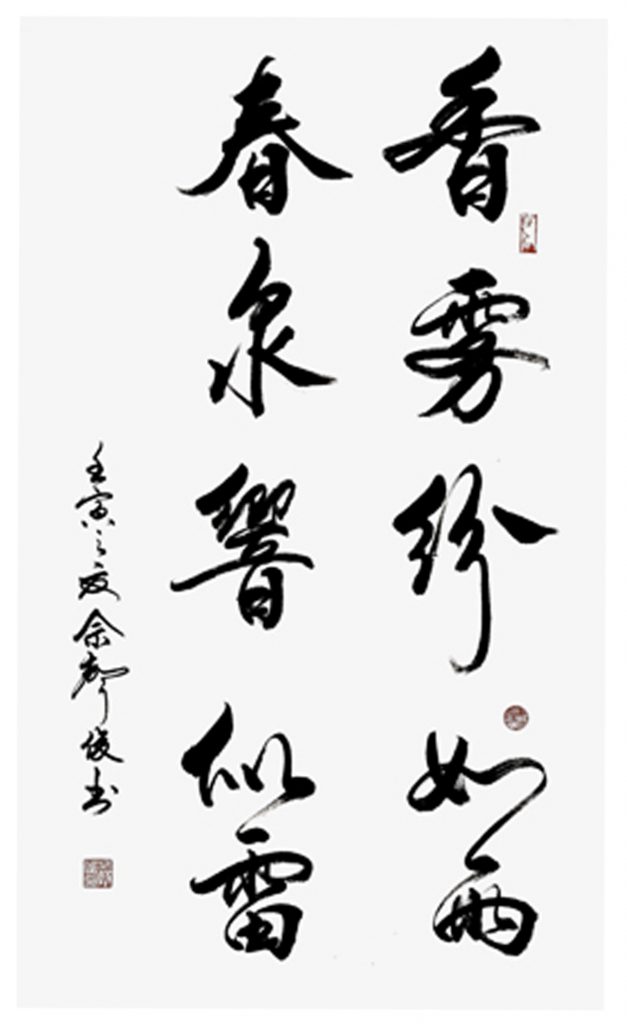 香雾纷如雨
春泉響似雷
壬寅之夏余声俊书